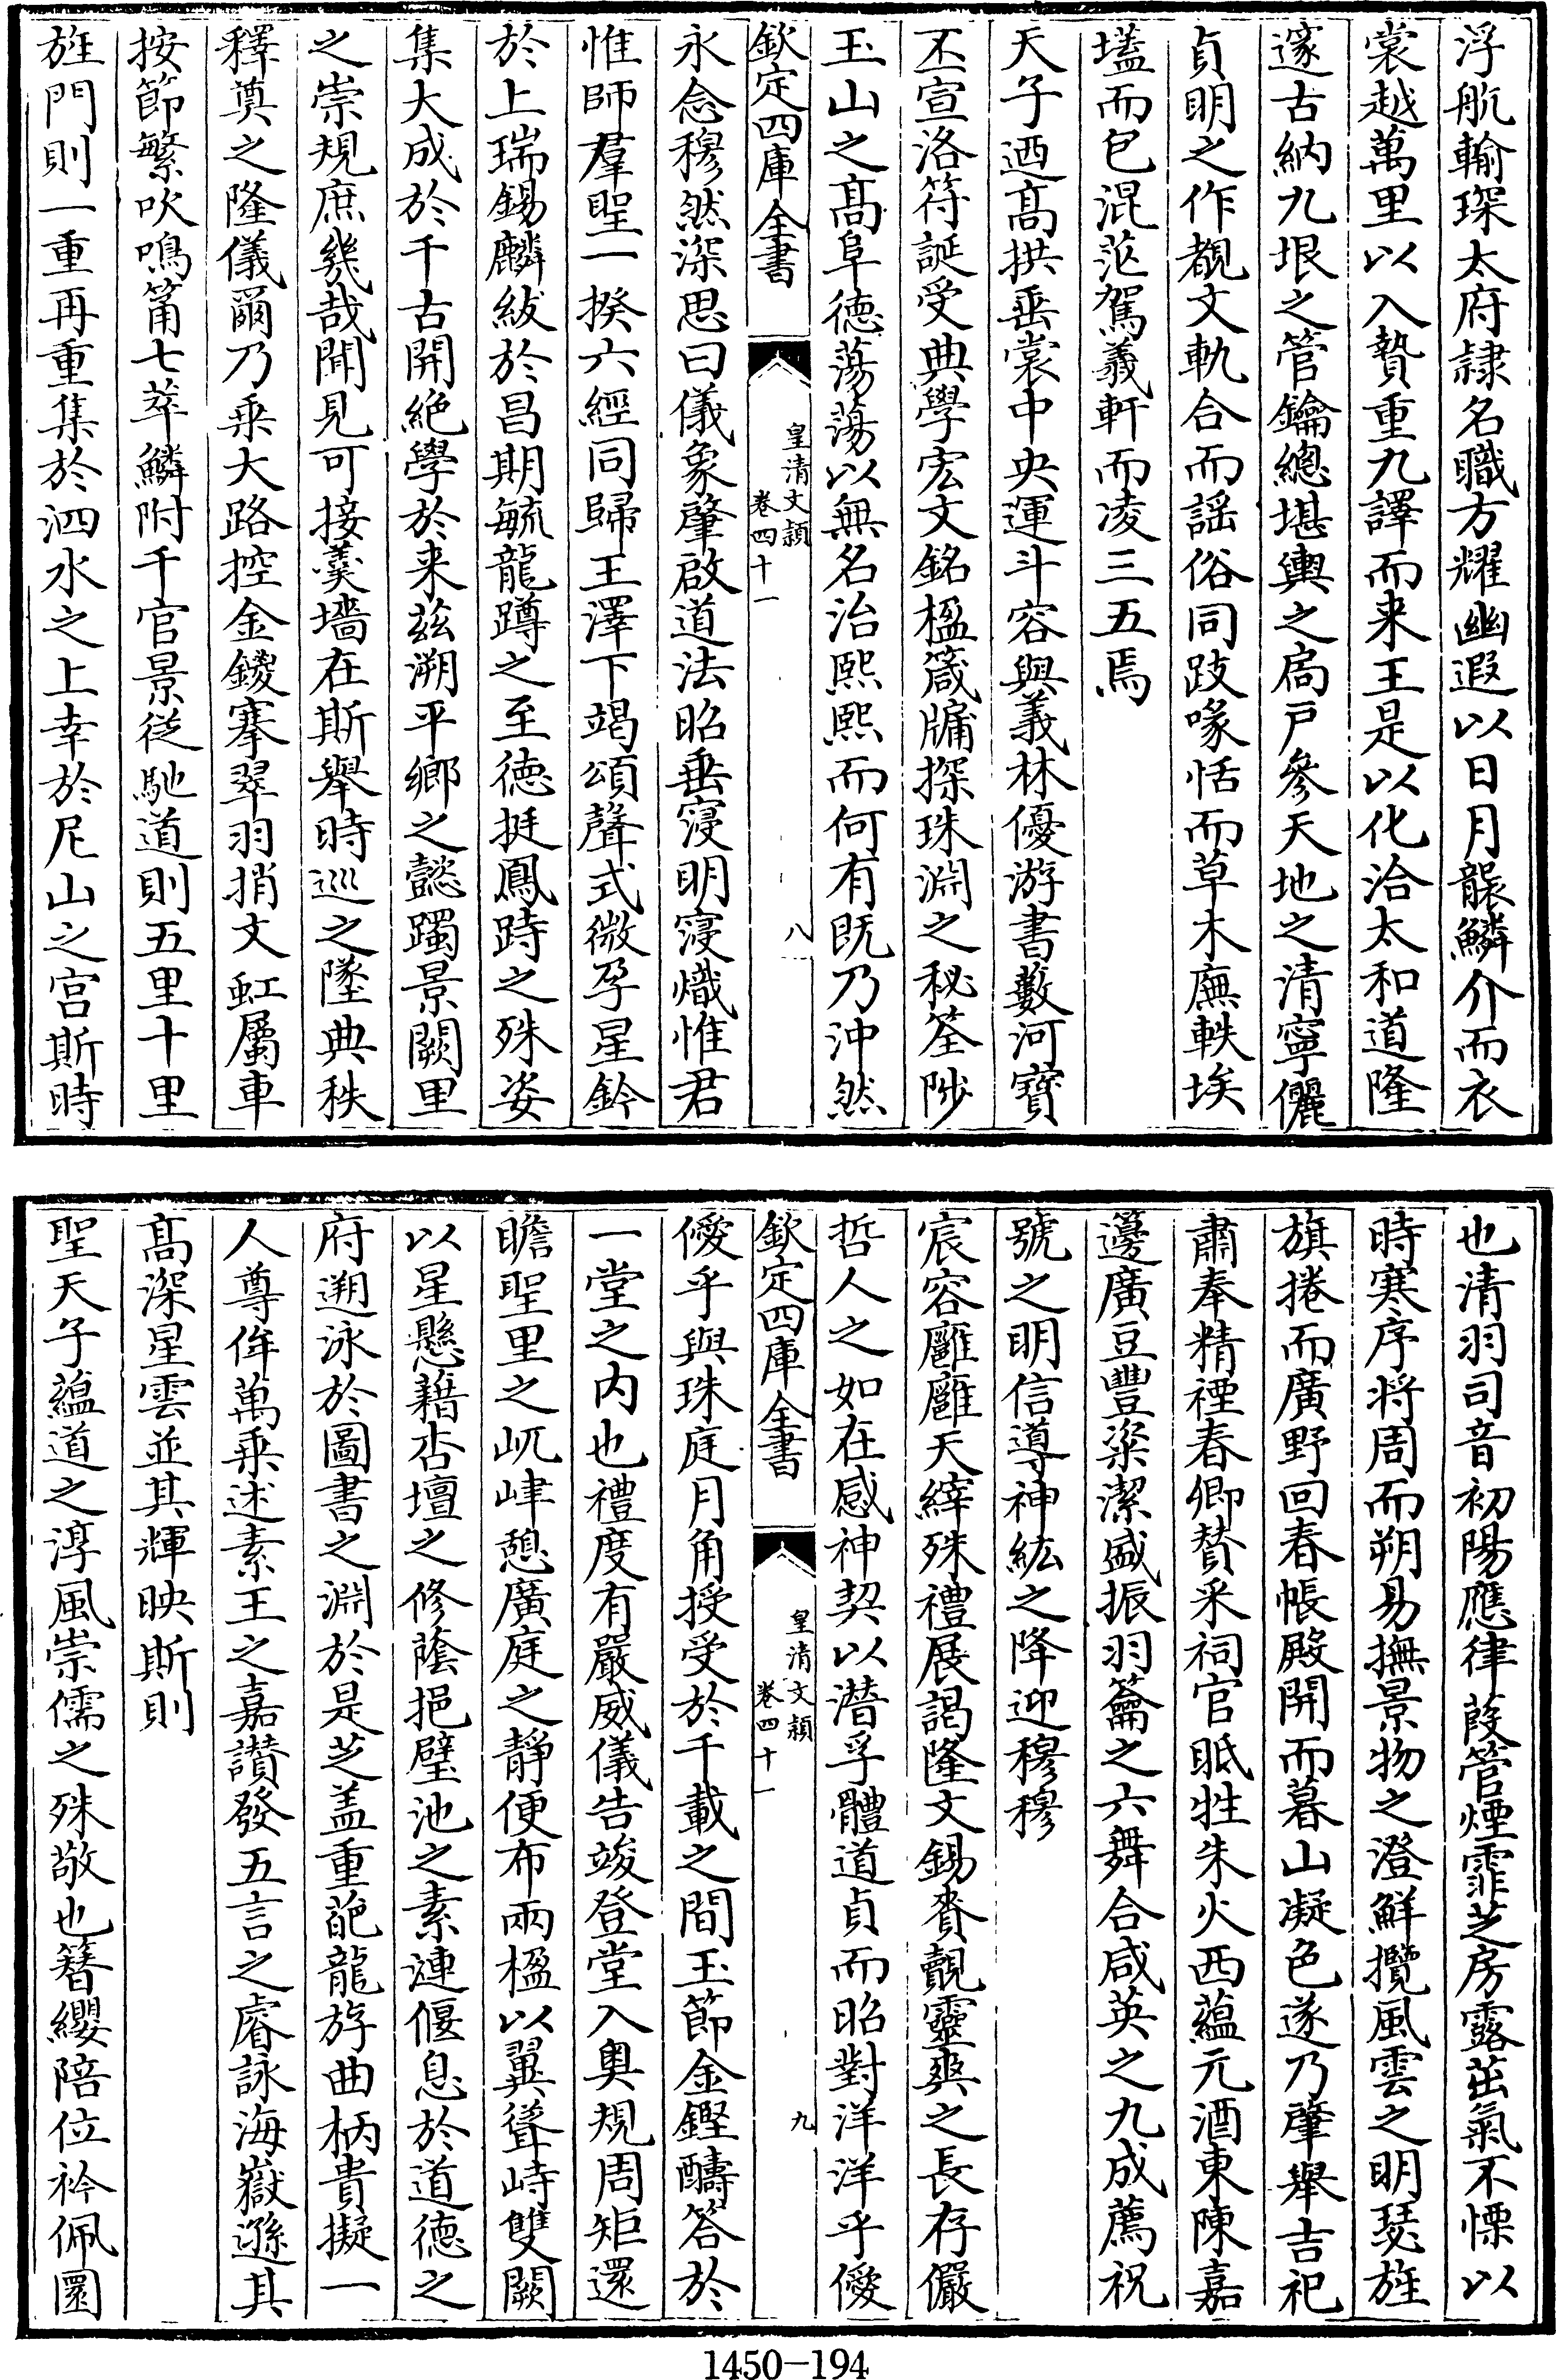 浮航輸琛太府隷名職方耀幽遐以日月襲鱗介而衣
裳越萬里以入贄重九譯而来王是以化洽太和道隆
邃古納九垠之管鑰總堪輿之扃戸參天地之清寧儷
貞明之作覩文軌合而謡俗同跂喙恬而草木廡軼埃
壒而包混茫駕義軒而凌三五焉
天子迺髙拱垂裳中央運斗容與義林優游書藪河寳
丕宣洛符誕受典學宏文銘楹箴牖探珠淵之秘筌陟
玉山之髙阜徳蕩蕩以無名治熙熙而何有既乃沖然
欽定四庫全書
皇清文穎
卷四十一
八
永念穆然深思曰儀象肇啟道法昭垂寖明寖熾惟君
惟師羣聖一揆六經同歸王澤下竭頌聲式微孕星鈐
於上瑞錫麟紱於昌期毓龍蹲之至徳挺鳳跱之殊姿
集大成於千古開絶學於来兹溯平鄉之懿躅景闕里
之崇規庶幾哉聞見可接羮墻在斯舉時巡之墜典秩
釋奠之隆儀爾乃乗大路控金鍐搴翠羽捎文虹屬車
按節繁吹鳴箾七萃鱗附千官景從馳道則五里十里
旌門則一重再重集於泗水之上幸於尼山之宫斯時
也清羽司音初陽應律葭管煙霏芝房露茁氣不慄以
時寒序将周而朔易撫景物之澄鮮攬風雲之明瑟旌
旗捲而廣野回春帳殿開而暮山凝色遂乃肇舉吉祀
肅奉精禋春卿賛采祠官眡牲朱火西蘊元酒東陳嘉
籩廣豆豐粢潔盛振羽籥之六舞合咸英之九成薦祝
號之明信導神紘之降迎穆穆
宸容廱廱天縡殊禮展謁隆文錫賚覿靈爽之長存儼
哲人之如在感神契以潛孚體道貞而昭對洋洋乎僾
欽定四庫全書
皇清文穎
卷四十一
九
僾乎與珠庭月角授受於千載之間玉節金鏗醻答於
一堂之内也禮度有嚴威儀告竣登堂入奥規周矩還
瞻聖里之屼嵂憩廣庭之靜便布兩楹以翼聳峙雙闕
以星懸藉杏壇之修蔭挹璧池之素漣偃息於道徳之
府遡泳於圖書之淵於是芝盖重葩龍斿曲柄貴擬一
人尊侔萬乗述素王之嘉讃發五言之睿詠海嶽遜其
髙深星雲並其輝映斯則
聖天子蘊道之淳風崇儒之殊敬也簮纓陪位衿佩圜
1450-194